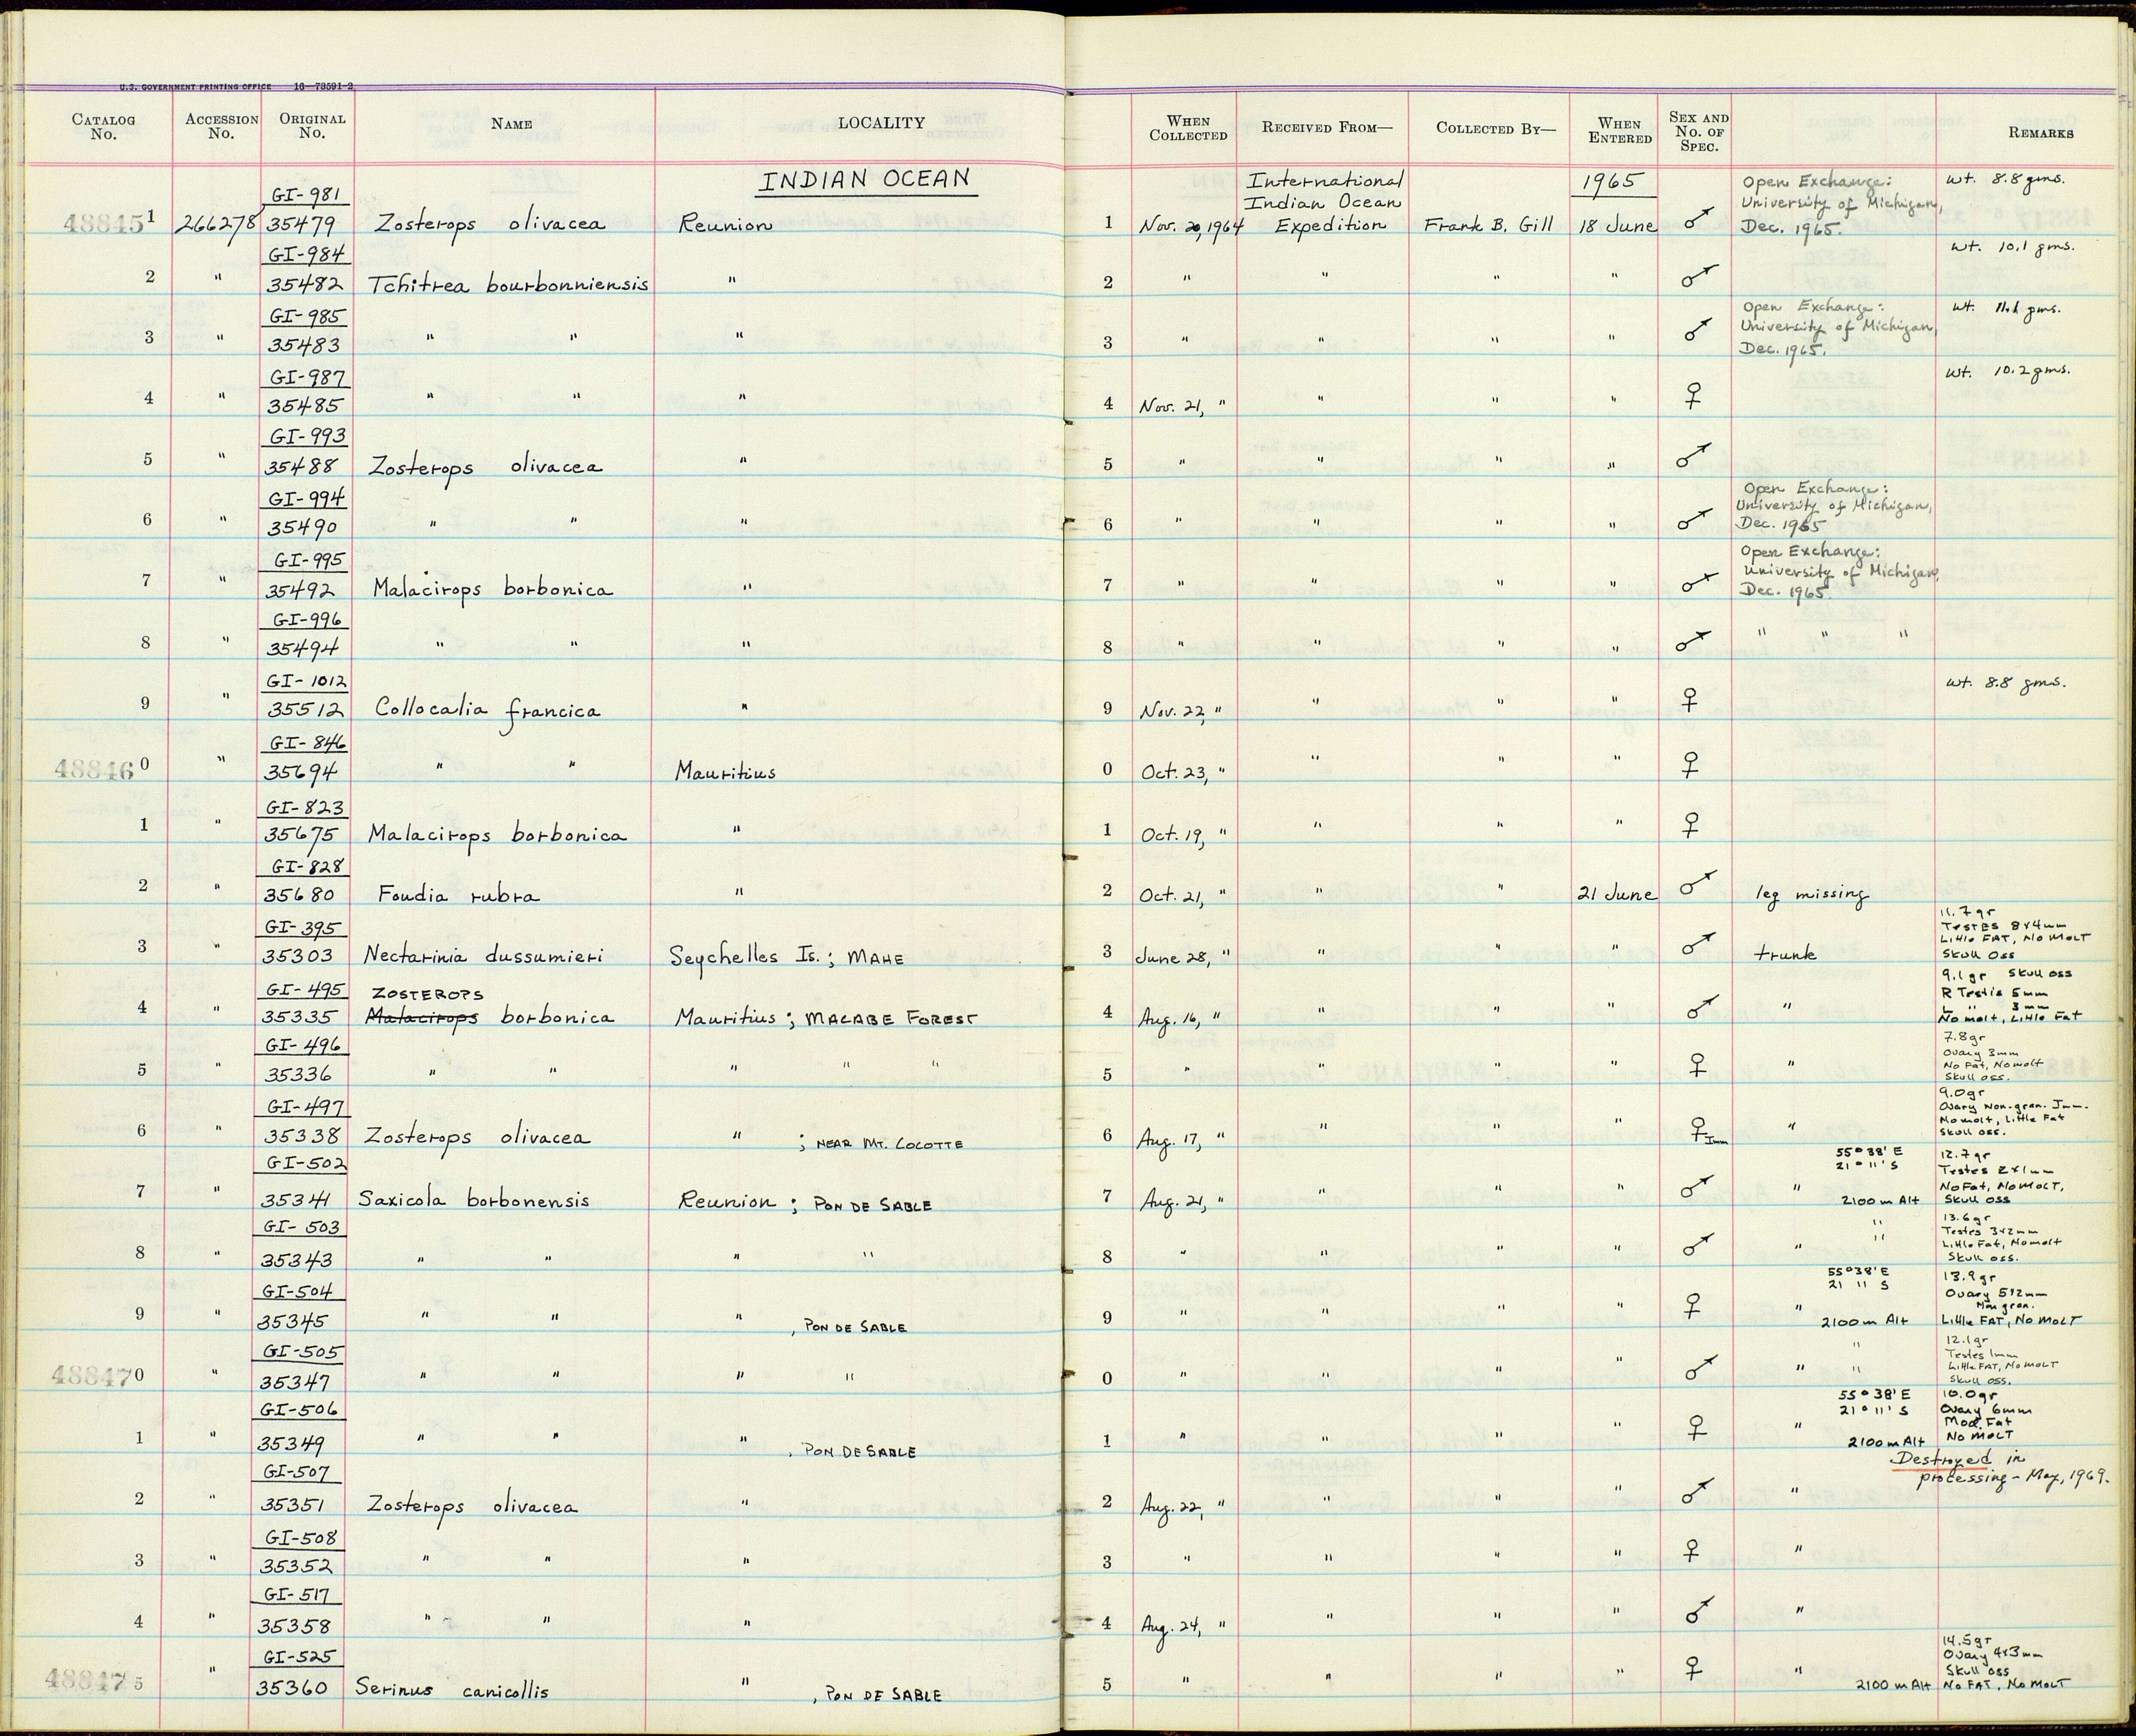 U.S. GOVERNMENT PRINTING OFFICE 16—73591-2
CATALOG No. ACCESSION No. ORIGINAL No. NAME LOCALITY WHEN COLLECTED RECEIVED FROM— COLLECTED BY— WHEN ENTERED SEX AND No. OF SPEC. REMARKS
INDIAN OCEAN International Indian Ocean 1965
GI-981
488451 266278 35479 Zosterops olivacea Reunion 1 Nov. 20, 1964 Expedition Frank B. Gill 18 June ♂ Open Exchange: University of Michigan, Dec. 1965. wt. 8.8 gms.
GI-984
2 " 35482 Tchitrea bourbonniensis " 2 " " " " ♂ wt. 10.1 gms.
GI-985
3 " 35483 " " " 3 " " " " ♂ Open Exchange: University of Michigan, Dec. 1965. wt. 11.1 gms.
GI-987
4 " 35485 " " " 4 Nov. 21, " " " " ♀ wt. 10.2 gms.
GI-993
5 " 35488 Zosterops olivacea " 5 " " " " ♂
GI-994
6 " 35490 " " " 6 " " " " ♂ Open Exchange: University of Michigan, Dec. 1965
GI-995
7 " 35492 Malacirops borbonica " 7 " " " " ♂ Open Exchange: University of Michigan, Dec. 1965.
GI-996
8 " 35494 " " " 8 " " " " ♂ " " "
GI-1012
9 " 35512 Collocalia francica " 9 Nov. 22, " " " " ♀ wt. 8.8 gms.
GI-846
488460 " 35694 " " Mauritius 0 Oct. 23, " " " " ♀
GI-823
1 " 35675 Malacirops borbonica " 1 Oct. 19, " " " " ♀
GI-828
2 " 35680 Foudia rubra " 2 Oct. 21, " " " 21 June ♂ leg missing
GI-395
3 " 35303 Nectarinia dussumieri Seychelles Is.; MAHE 3 June 28, " " " " ♂ trunk 11.7 gr TESTES 8x4mm Little FAT, NO MOLT Skull Oss
GI-495 ZOSTEROPS
4 " 35335 Malacirops borbonica Mauritius; MACABE FOREST 4 Aug. 16, " " " " ♂ " 9.1 gr Skull oss R Testis 5mm L " 3mm No molt, Little Fat
GI-496
5 " 35336 " " " " " 5 " " " " ♀ " 7.8gr Ovary 3mm No Fat, No molt Skull oss.
GI-497
6 " 35338 Zosterops olivacea " ; NEAR MT. COCOTTE 6 Aug. 17, " " " " ♀ Imm " 9.0gr Ovary Non-gran. Imm. No molt, Little Fat Skull oss.
GI-502
7 " 35341 Saxicola borbonensis Reunion ; PON DE SABLE 7 Aug. 21, " " " " ♂ " 55° 38' E 21° 11' S 2100 m Alt 12.7gr Testes 2x1mm No Fat, No MOLT, Skull oss
GI-503
8 " 35343 " " " " 8 " " " " ♂ " " " 13.6gr Testes 3x2mm Little Fat, No molt Skull oss.
GI-504
9 " 35345 " " " , PON DE SABLE 9 " " " " ♀ " 55°38'E 21 11 S 2100 m Alt 13.9gr Ovary 5x2mm Non gran. Little FAT, NO MOLT
GI-505
488470 " 35347 " " " " 0 " " " " ♂ " " " 12.1gr Testes 1mm Little FAT, No MOLT Skull oss.
GI-506
1 " 35349 " " " , PON DE SABLE 1 " " " " ♀ " 55° 38' E 21° 11' S 2100 m Alt 10.0gr Ovary 6mm Mod. Fat No MOLT
GI-507
2 " 35351 Zosterops olivacea " 2 Aug. 22, " " " " ♂ " Destroyed in processing - May, 1969.
GI-508
3 " 35352 " " " 3 " " " " ♀ "
GI-517
4 " 35358 " " " 4 Aug. 24, " " " " ♂ "
GI-525
488475 " 35360 Serinus canicollis " , PON DE SABLE 5 " " " " ♀ " 2100 m Alt 14.5gr Ovary 4x3mm Skull oss No FAT, No MOLT